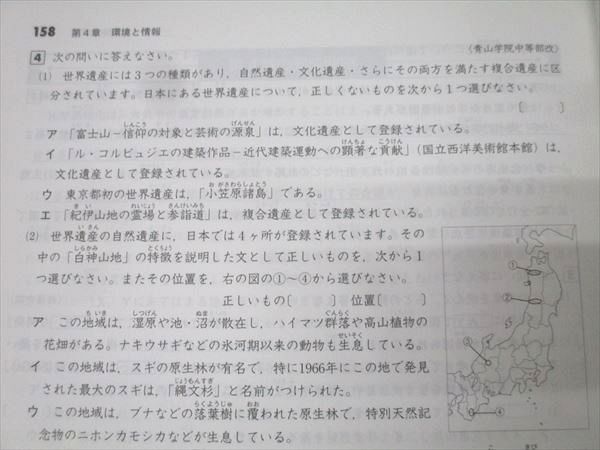 158 第4章 環境と情報
4 次の問いに答えなさい。 (青山学院中等部改)
(1) 世界遺産には3つの種類があり,自然遺産・文化遺産・さらにその両方を満たす複合遺産に区
分されています。日本にある世界遺産について,正しくないものを次から1つ選びなさい。
[ ]
しんこう げんせん
ア 「富士山−信仰の対象と芸術の源泉」は,文化遺産として登録されている。
けんちょ こうけん
イ 「ル・コルビュジエの建築作品−近代建築運動への顕著な貢献」(国立西洋美術館本館)は,
文化遺産として登録されている。
おがさわらしょとう
ウ 東京都初の世界遺産は,「小笠原諸島」である。
きい れいじょう さんけいみち
エ 「紀伊山地の霊場と参詣道」は,複合遺産として登録されている。
いさん
(2) 世界遺産の自然遺産に,日本では4ヶ所が登録されています。その
しらかみ とくちょう
中の「白神山地」の特徴を説明した文として正しいものを,次から1
つ選びなさい。またその位置を,右の図の①〜④から選びなさい。
正しいもの[ ] 位置[ ]
ちいき しつげん ぬま ぐんらく
ア この地域は,湿原や池・沼が散在し,ハイマツ群落や高山植物の
せいそく
花畑がある。ナキウサギなどの氷河期以来の動物も生息している。
イ この地域は,スギの原生林が有名で,特に1966年にこの地で発見
じょうもんすぎ
された最大のスギは,「縄文杉」と名前がつけられた。
らくようじゅ おお
ウ この地域は,ブナなどの落葉樹に覆われた原生林で,特別天然記
念物のニホンカモシカなどが生息している。
①
②
③
④